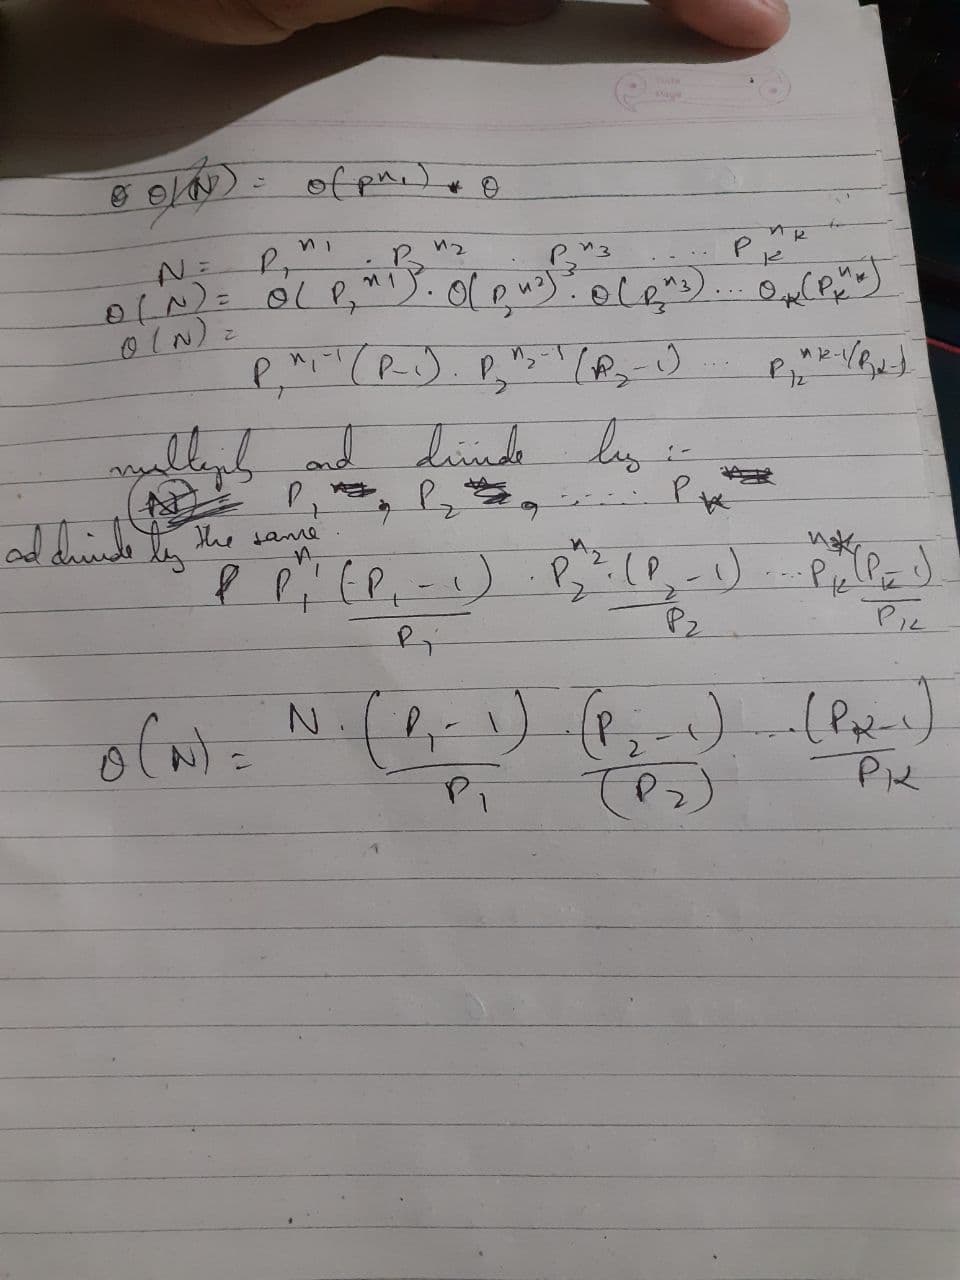 θ(N) = θ(p^n₁) * θ
N = P₁^n1 . P₂^n2 . P₃^n3 .... P_k^n_k
θ(N) = θ(P₁^n1) . θ(P₂^n2) . θ(P₃^n3) ... θ_k(P_k^n_k)
θ(N) =
P₁^n₁-1 (P-1) . P₂^n₂-1 (P₂-1) ... P_k^nk-1 (P_k-1)
multiply and divide by :-
P₁ , P₂ , ...... P_k
ad divide by the same.
P₁^n₁ (P₁-1)/P₁ . P₂^n₂ . (P₂-1)/P₂ .... P_k^n_k (P_k-1)/P_k
θ(N) = N . (P₁-1)/P₁ . (P₂-1)/(P₂) ... (P_k-1)/P_k